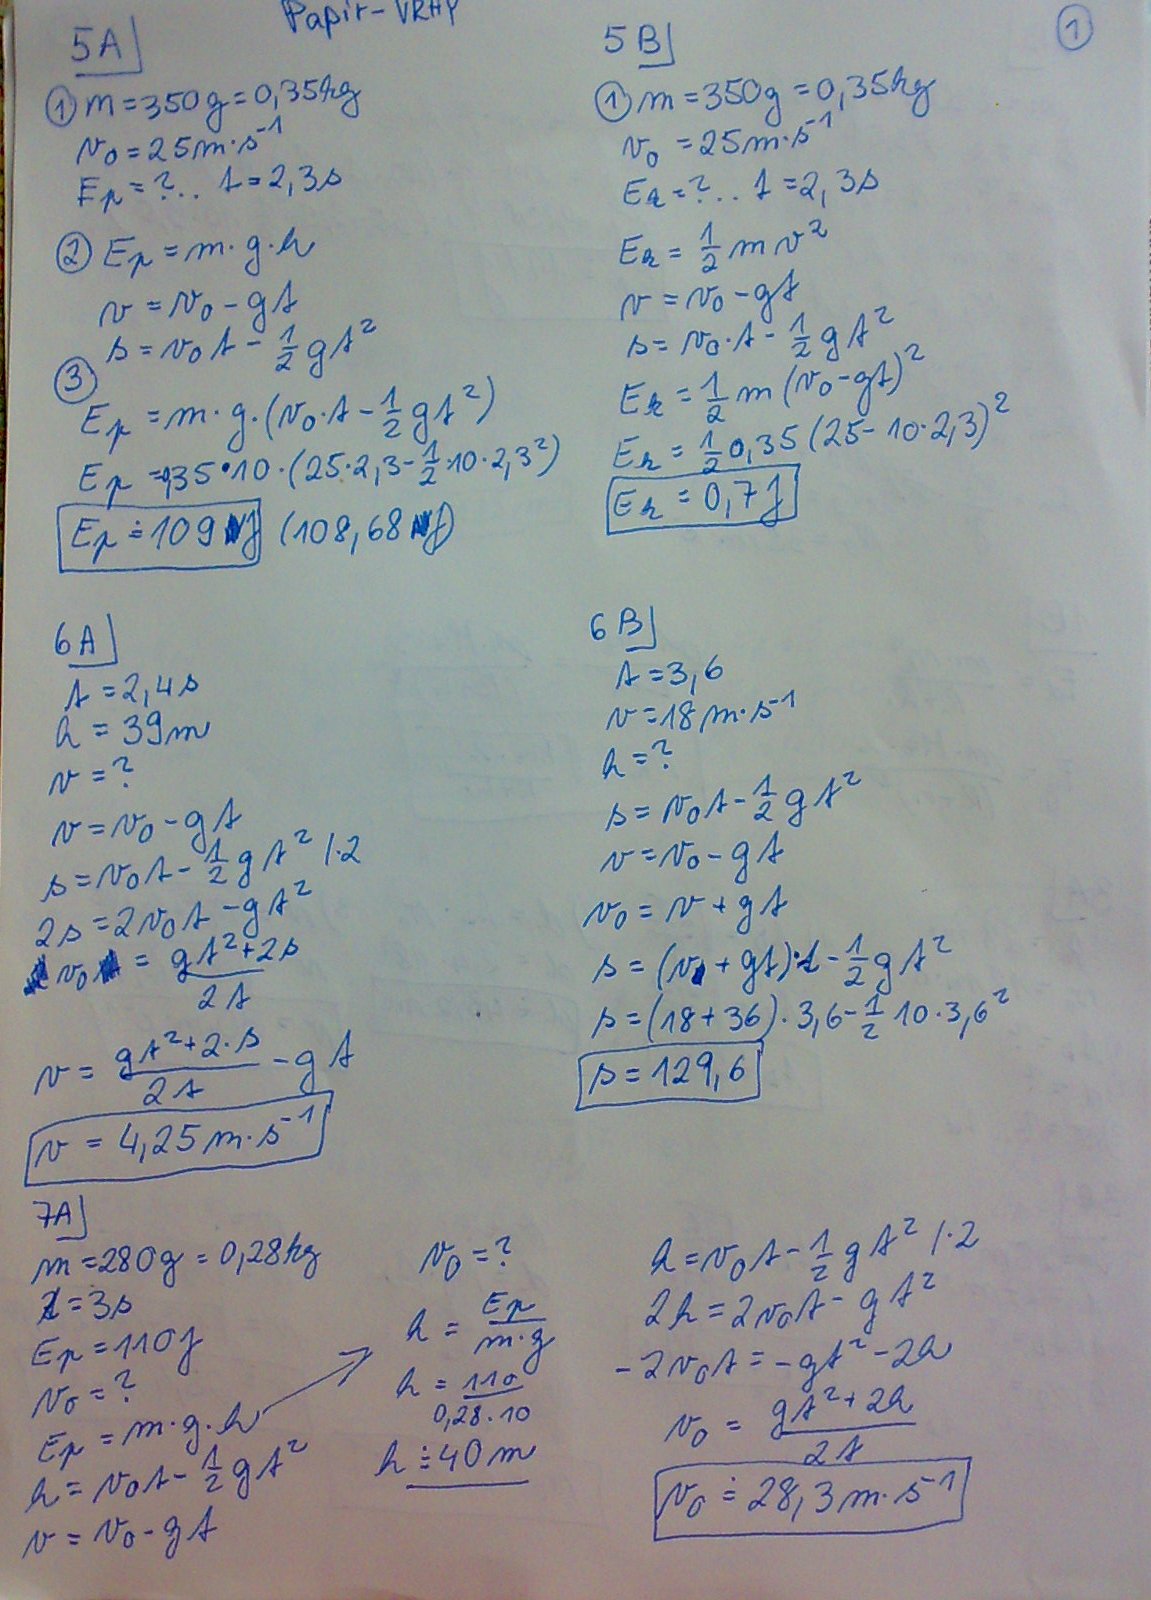 Papír-VRHY
1
5A
① m = 350g = 0,35kg
v₀ = 25m·s⁻¹
Eₚ = ?.. t = 2,3s
② Eₚ = m·g·h
v = v₀ - gt
s = v₀t - 1/2 gt²
③
Eₚ = m·g·(v₀·t - 1/2 gt²)
Eₚ = ,35·10·(25·2,3 - 1/2·10·2,3²)
Eₚ ≐ 109 J (108,68 J)
5B
① m = 350g = 0,35kg
v₀ = 25m·s⁻¹
Eₖ = ?.. t = 2,3s
Eₖ = 1/2 mv²
v = v₀ - gt
s = v₀·t - 1/2 gt²
Eₖ = 1/2 m(v₀ - gt)²
Eₖ = 1/2 0,35(25 - 10·2,3)²
Eₖ = 0,7J
6A
t = 2,4s
h = 39m
v = ?
v = v₀ - gt
s = v₀t - 1/2 gt² /·2
2s = 2v₀t - gt²
v₀ = (gt² + 2s)/2t
v = (gt² + 2·s)/2t - gt
v = 4,25m·s⁻¹
6B
t = 3,6
v = 18m·s⁻¹
h = ?
s = v₀t - 1/2 gt²
v = v₀ - gt
v₀ = v + gt
s = (v + gt)·t - 1/2 gt²
s = (18 + 36)·3,6 - 1/2 10·3,6²
s = 129,6
7A
m = 280g = 0,28kg
t = 3s
Eₚ = 110J
v₀ = ?
Eₚ = m·g·h
h = v₀t - 1/2 gt²
v = v₀ - gt
v₀ = ?
h = Eₚ/m·g
h = 110/0,28·10
h ≐ 40m
h = v₀t - 1/2 gt² /·2
2h = 2v₀t - gt²
-2v₀t = -gt² - 2h
v₀ = (gt² + 2h)/2t
v₀ ≐ 28,3m·s⁻¹